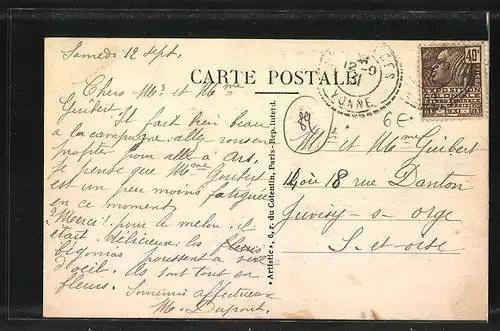 Samedi 12 Sept.
CARTE POSTALE
Chers Mr et Mme
Guibert
Il fait bien beau
a la campagne. allez vous en
profiter pour aller a Ars.
Je pense que Mme Guibert
est un peu moins fatiguée
en ce moment.
Merci! pour le melon. il
était délicieux les fleurs
bégonias poussent a vue
d'oeil. Ils sont tout en
fleurs. Souvenir affectueux
M. Dupont.
« Artistic », 6, r. du Cotentin, Paris - Rep. Interd.
12 - 9
31
YONNE
40c
EXPOSITION
89
6€
Mr et Mme Guibert
18 rue Danton
Juvisy - s - orge
S - et - oise